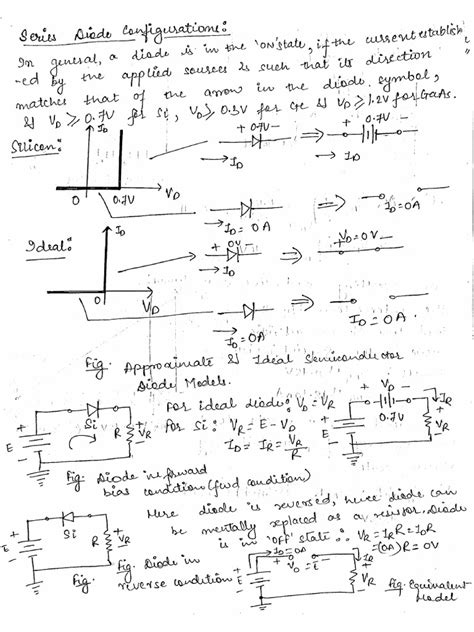 Series Diode Configurations:
In general, a diode is in the 'ON' state, if the current establish
-ed by the applied sources is such that its direction
matches that of the arrow in the diode symbol,
& VD ≥ 0.7V for Si, VD ≥ 0.3V for Ge & VD ≥ 1.2V for GaAs.
Silicon:
ID
+ 0.7V -
ID
⇒
+ 0.7V -
ID
0
0.7V
VD
ID = 0A
⇒
ID = 0A
Ideal:
ID
+ 0V -
ID
⇒
+ VD = 0V -
0
VD
ID = 0A
⇒
ID = 0A
Fig. Approximate & Ideal Semiconductor
Diode Models.
E
Si
R
VR
For ideal diode: VD = VR
For Si: VR = E - VD
ID = IR = VR/R
+ VD -
0.7V
IR
R
VR
Fig: Diode in forward
bias condition (fwd condition)
Here diode is reversed, hence diode can
be mentally replaced as a resistor. Diode
is in 'off' state ∴ VR = IRR = IDR
= (0A)R = 0V
E
Si
R
VR
Fig.
Fig: Diode in
reverse condition
ID = 0A
+ VD = E -
E
IR
R
VR
Fig: Equivalent
Model